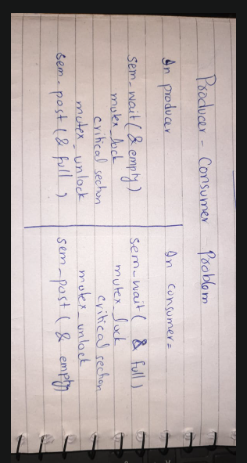 Producer - Consumer Problem
In producer
sem-wait( & empty)
mutex_lock
critical section
mutex_unlock
sem-post ( & full )
In consumer=
sem-wait ( & full )
mutex_lock
critical section
mutex_unlock
sem-post ( & empty